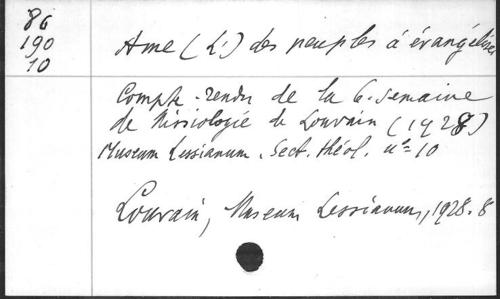 86
190
10
Ame (L') des peuples à évangéliser
Compte-rendu de la 6e semaine
de Missiologie de Louvain (1928)
Museum Lessianum. Sect. théol. n° 10
Louvain, Museum Lessianum, 1928. 8